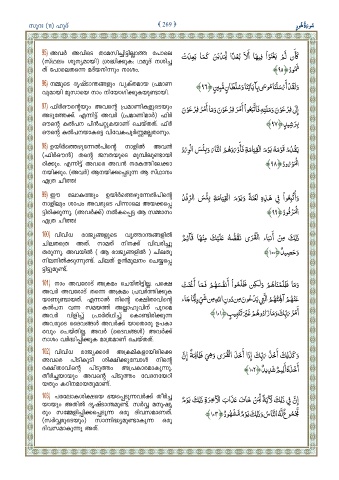 സൂറ (11) ഹൂദ്
{ 269 }
سُورَةُ هُود
95) അവർ അവിടെ താമസിച്ചിട്ടില്ലാത്ത പോലെ
(സ്ഥലം ശൂന്യമായി) ശ്രദ്ധിക്കുക: ഥമൂദ് നശിച്ച
ത് പോലെതന്നെ മദ്‌യനിന്നും നാശം.
كَأَن لَّمْ يَغْنَوْا فِيهَا أَلَا بُعْدًا لِّمَدْيَنَ كَمَا بَعِدَتْ
ثَمُودُ ﴿٩٥﴾
96) നമ്മുടെ ദൃഷ്ടാന്തങ്ങളും വ്യക്തമായ പ്രമാണ
വുമായി മൂസായെ നാം നിയോഗിക്കുകയുണ്ടായി.
وَلَقَدْ أَرْسَلْنَا مُوسَى بِآيَاتِنَا وَسُلْطَانٍ مُّبِينٍ ﴿٩٦﴾
97) ഫിർഔന്റെയും അവന്റെ പ്രമാണികളുടെയും
അടുത്തേക്ക്. എന്നിട്ട് അവർ (പ്രമാണിമാർ) ഫിർ
ഔന്റെ കൽപന പിൻപറ്റുകയാണ് ചെയ്തത്. ഫിർ
ഔന്റെ കൽപനയാകട്ടെ വിവേകപൂർണ്ണമല്ലതാനും.
إِلَى فِرْعَوْنَ وَمَلَئِهِ فَاتَّبَعُوا أَمْرَ فِرْعَوْنَ وَمَا أَمْرُ فِرْعَوْنَ
بِرَشِيدٍ ﴿٩٧﴾
98) ഉയിർത്തെഴുന്നേൽപിന്റെ നാളിൽ അവൻ
(ഫിർഔൻ) തന്റെ ജനതയുടെ മുമ്പിലുണ്ടായി
രിക്കും. എന്നിട്ട് അവരെ അവൻ നരകത്തിലേക്കാ
നയിക്കും. (അവർ) ആനയിക്കപ്പെടുന്ന ആ സ്ഥാനം
എത്ര ചീത്ത!
يَقْدُمُ قَوْمَهُ يَوْمَ الْقِيَامَةِ فَأَوْرَدَهُمُ النَّارَ وَبِئْسَ الْوِرْدُ
الْمَوْرُودُ ﴿٩٨﴾
99) ഈ ലോകത്തും ഉയിർത്തെഴുന്നേൽപിന്റെ
നാളിലും ശാപം അവരുടെ പിന്നാലെ അയക്കപ്പെ
ട്ടിരിക്കുന്നു. (അവർക്ക്) നൽകപ്പെട്ട ആ സമ്മാനം
എത്ര ചീത്ത!
وَأُتْبِعُوا فِي هَذِهِ لَعْنَةً وَيَوْمَ الْقِيَامَةِ بِئْسَ الرِّفْدُ
الْمَرْفُودُ ﴿٩٩﴾
100) വിവിധ രാജ്യങ്ങളുടെ വൃത്താന്തങ്ങളിൽ
ചിലതത്രെ അത്. നാമത് നിനക്ക് വിവരിച്ചു
തരുന്നു. അവയിൽ ( ആ രാജ്യങ്ങളിൽ ) ചിലതു
നിലനിൽക്കുന്നുണ്ട്. ചിലത് ഉന്മൂലനം ചെയ്യപ്പെ
ട്ടിട്ടുമുണ്ട്.
ذَلِكَ مِنْ أَنبَاءِ الْقُرَى نَقُصُّهُ عَلَيْكَ مِنْهَا قَائِمٌ
وَحَصِيدٌ ﴿١٠٠﴾
101) നാം അവരോട് അക്രമം ചെയ്തിട്ടില്ല. പക്ഷെ
അവർ അവരോട് തന്നെ അക്രമം പ്രവർത്തിക്കുക
യാണുണ്ടായത്. എന്നാൽ നിന്റെ രക്ഷിതാവിന്റെ
കൽപന വന്ന സമയത്ത് അല്ലാഹുവിന് പുറമെ
അവർ വിളിച്ച് പ്രാർത്ഥിച്ച് കൊണ്ടിരിക്കുന്ന
അവരുടെ ദൈവങ്ങൾ അവർക്ക് യാതൊരു ഉപകാ
രവും ചെയ്തില്ല. അവർ (ദൈവങ്ങൾ) അവർക്ക്
നാശം വർദ്ധിപ്പിക്കുക മാത്രമാണ് ചെയ്തത്.
وَمَا ظَلَمْنَاهُمْ وَلَكِن ظَلَمُوا أَنفُسَهُمْ فَمَا أَغْنَتْ
عَنْهُمْ آلِهَتُهُمُ الَّتِي يَدْعُونَ مِن دُونِ اللَّهِ مِن شَيْءٍ لَّمَّا جَاءَ
أَمْرُ رَبِّكَ وَمَا زَادُوهُمْ غَيْرَ تَتْبِيبٍ ﴿١٠١﴾
102) വിവിധ രാജ്യക്കാർ അക്രമികളായിരിക്കെ
അവരെ പിടികൂടി ശിക്ഷിക്കുമ്പോൾ നിന്റെ
രക്ഷിതാവിന്റെ പിടുത്തം അപ്രകാരമാകുന്നു.
തീർച്ചയായും അവന്റെ പിടുത്തം വേദനയേറി
യതും കഠിനമായതുമാണ്.
وَكَذَلِكَ أَخْذُ رَبِّكَ إِذَا أَخَذَ الْقُرَى وَهِيَ ظَالِمَةٌ إِنَّ
أَخْذَهُ أَلِيمٌ شَدِيدٌ ﴿١٠٢﴾
103) പരലോകശിക്ഷയെ ഭയപ്പെടുന്നവർക്ക് തീർച്ച
യായും അതിൽ ദൃഷ്ടാന്തമുണ്ട്. സർവ്വ മനുഷ്യ
രും സമ്മേളിപ്പിക്കപ്പെടുന്ന ഒരു ദിവസമാണത്.
(സർവ്വരുടെയും) സാന്നിദ്ധ്യമുണ്ടാകുന്ന ഒരു
ദിവസമാകുന്നു അത്.
إِنَّ فِي ذَلِكَ لَآيَةً لِّمَنْ خَافَ عَذَابَ الْآخِرَةِ ذَلِكَ يَوْمٌ
مَّجْمُوعٌ لَّهُ النَّاسُ وَذَلِكَ يَوْمٌ مَّشْهُودٌ ﴿١٠٣﴾